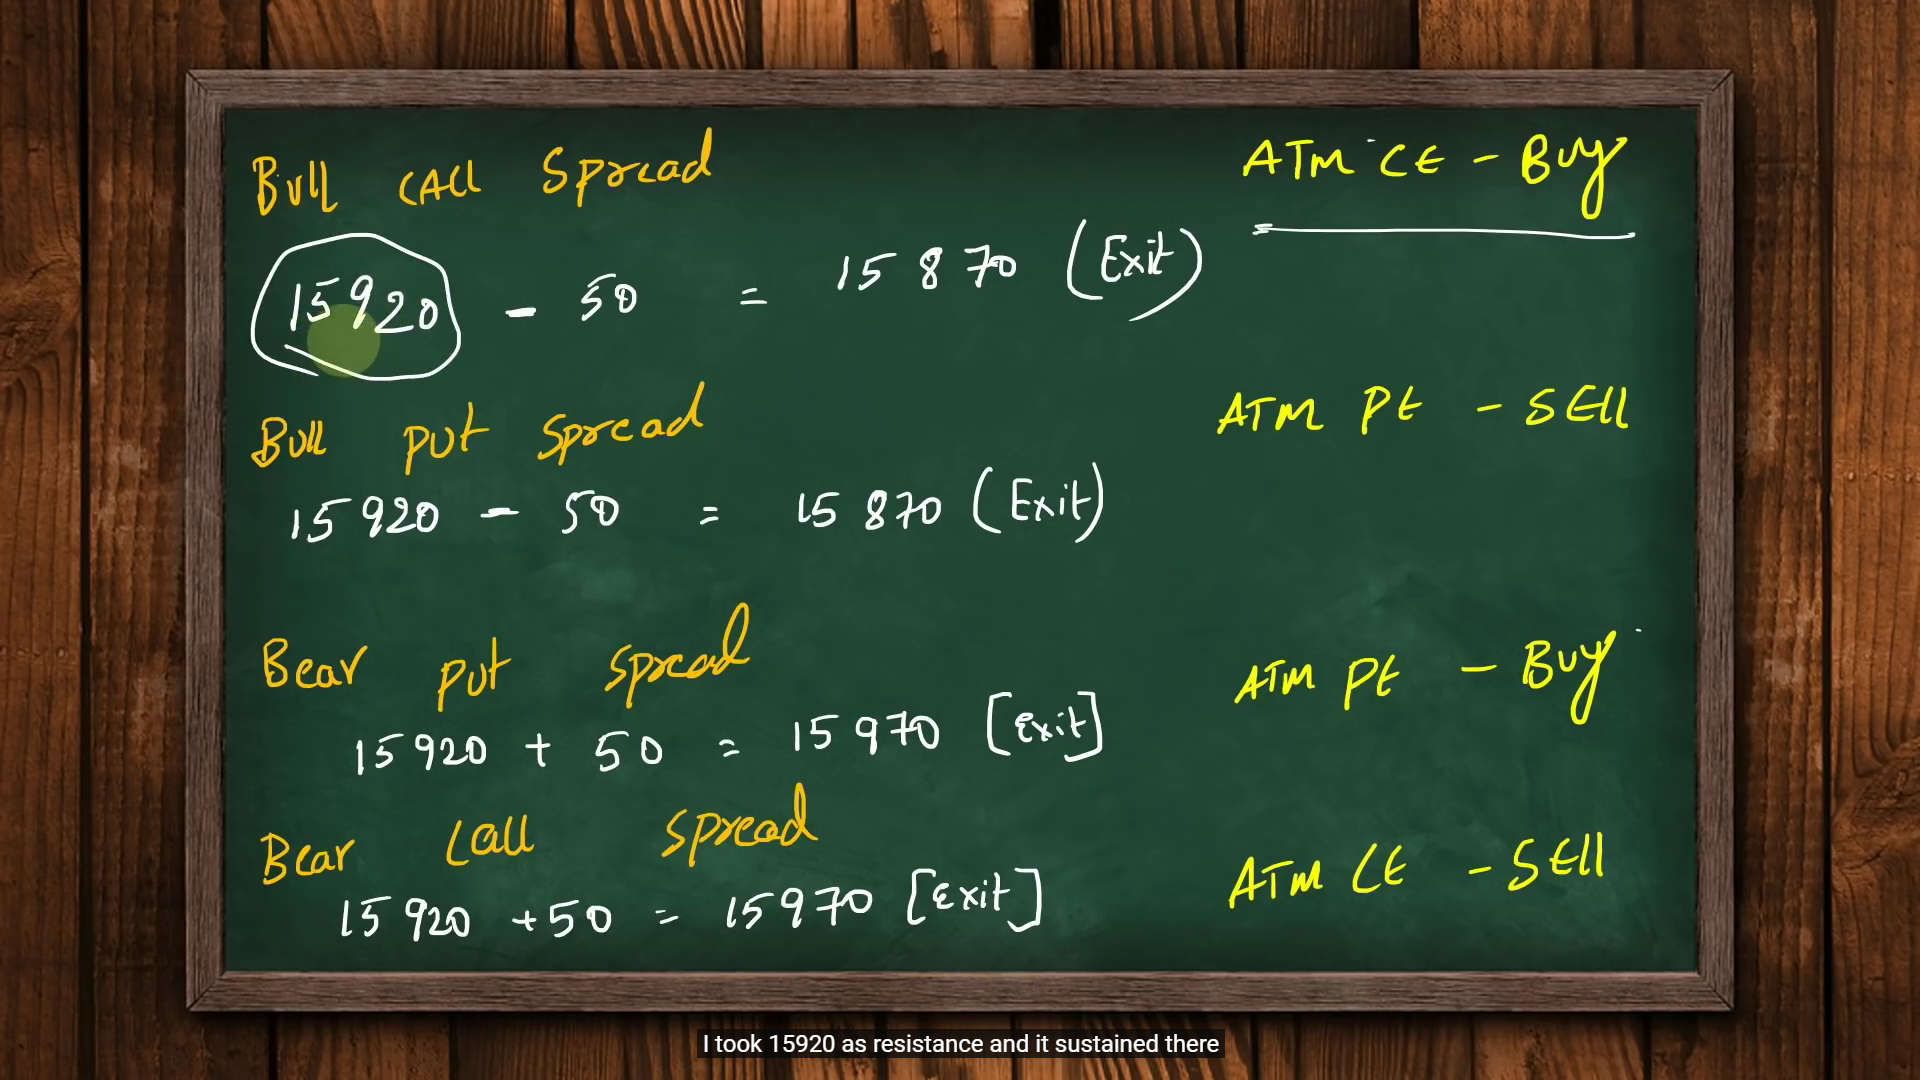 Bull CAll Spread
ATM CE - Buy
15920 - 50 = 15870 (Exit)
Bull Put Spread
ATM PE - SEll
15920 - 50 = 15870 (Exit)
Bear Put Spread
ATM PE - Buy
15920 + 50 = 15970 [Exit]
Bear Call Spread
ATM CE - SEll
15920 +50 = 15970 [Exit]
I took 15920 as resistance and it sustained there